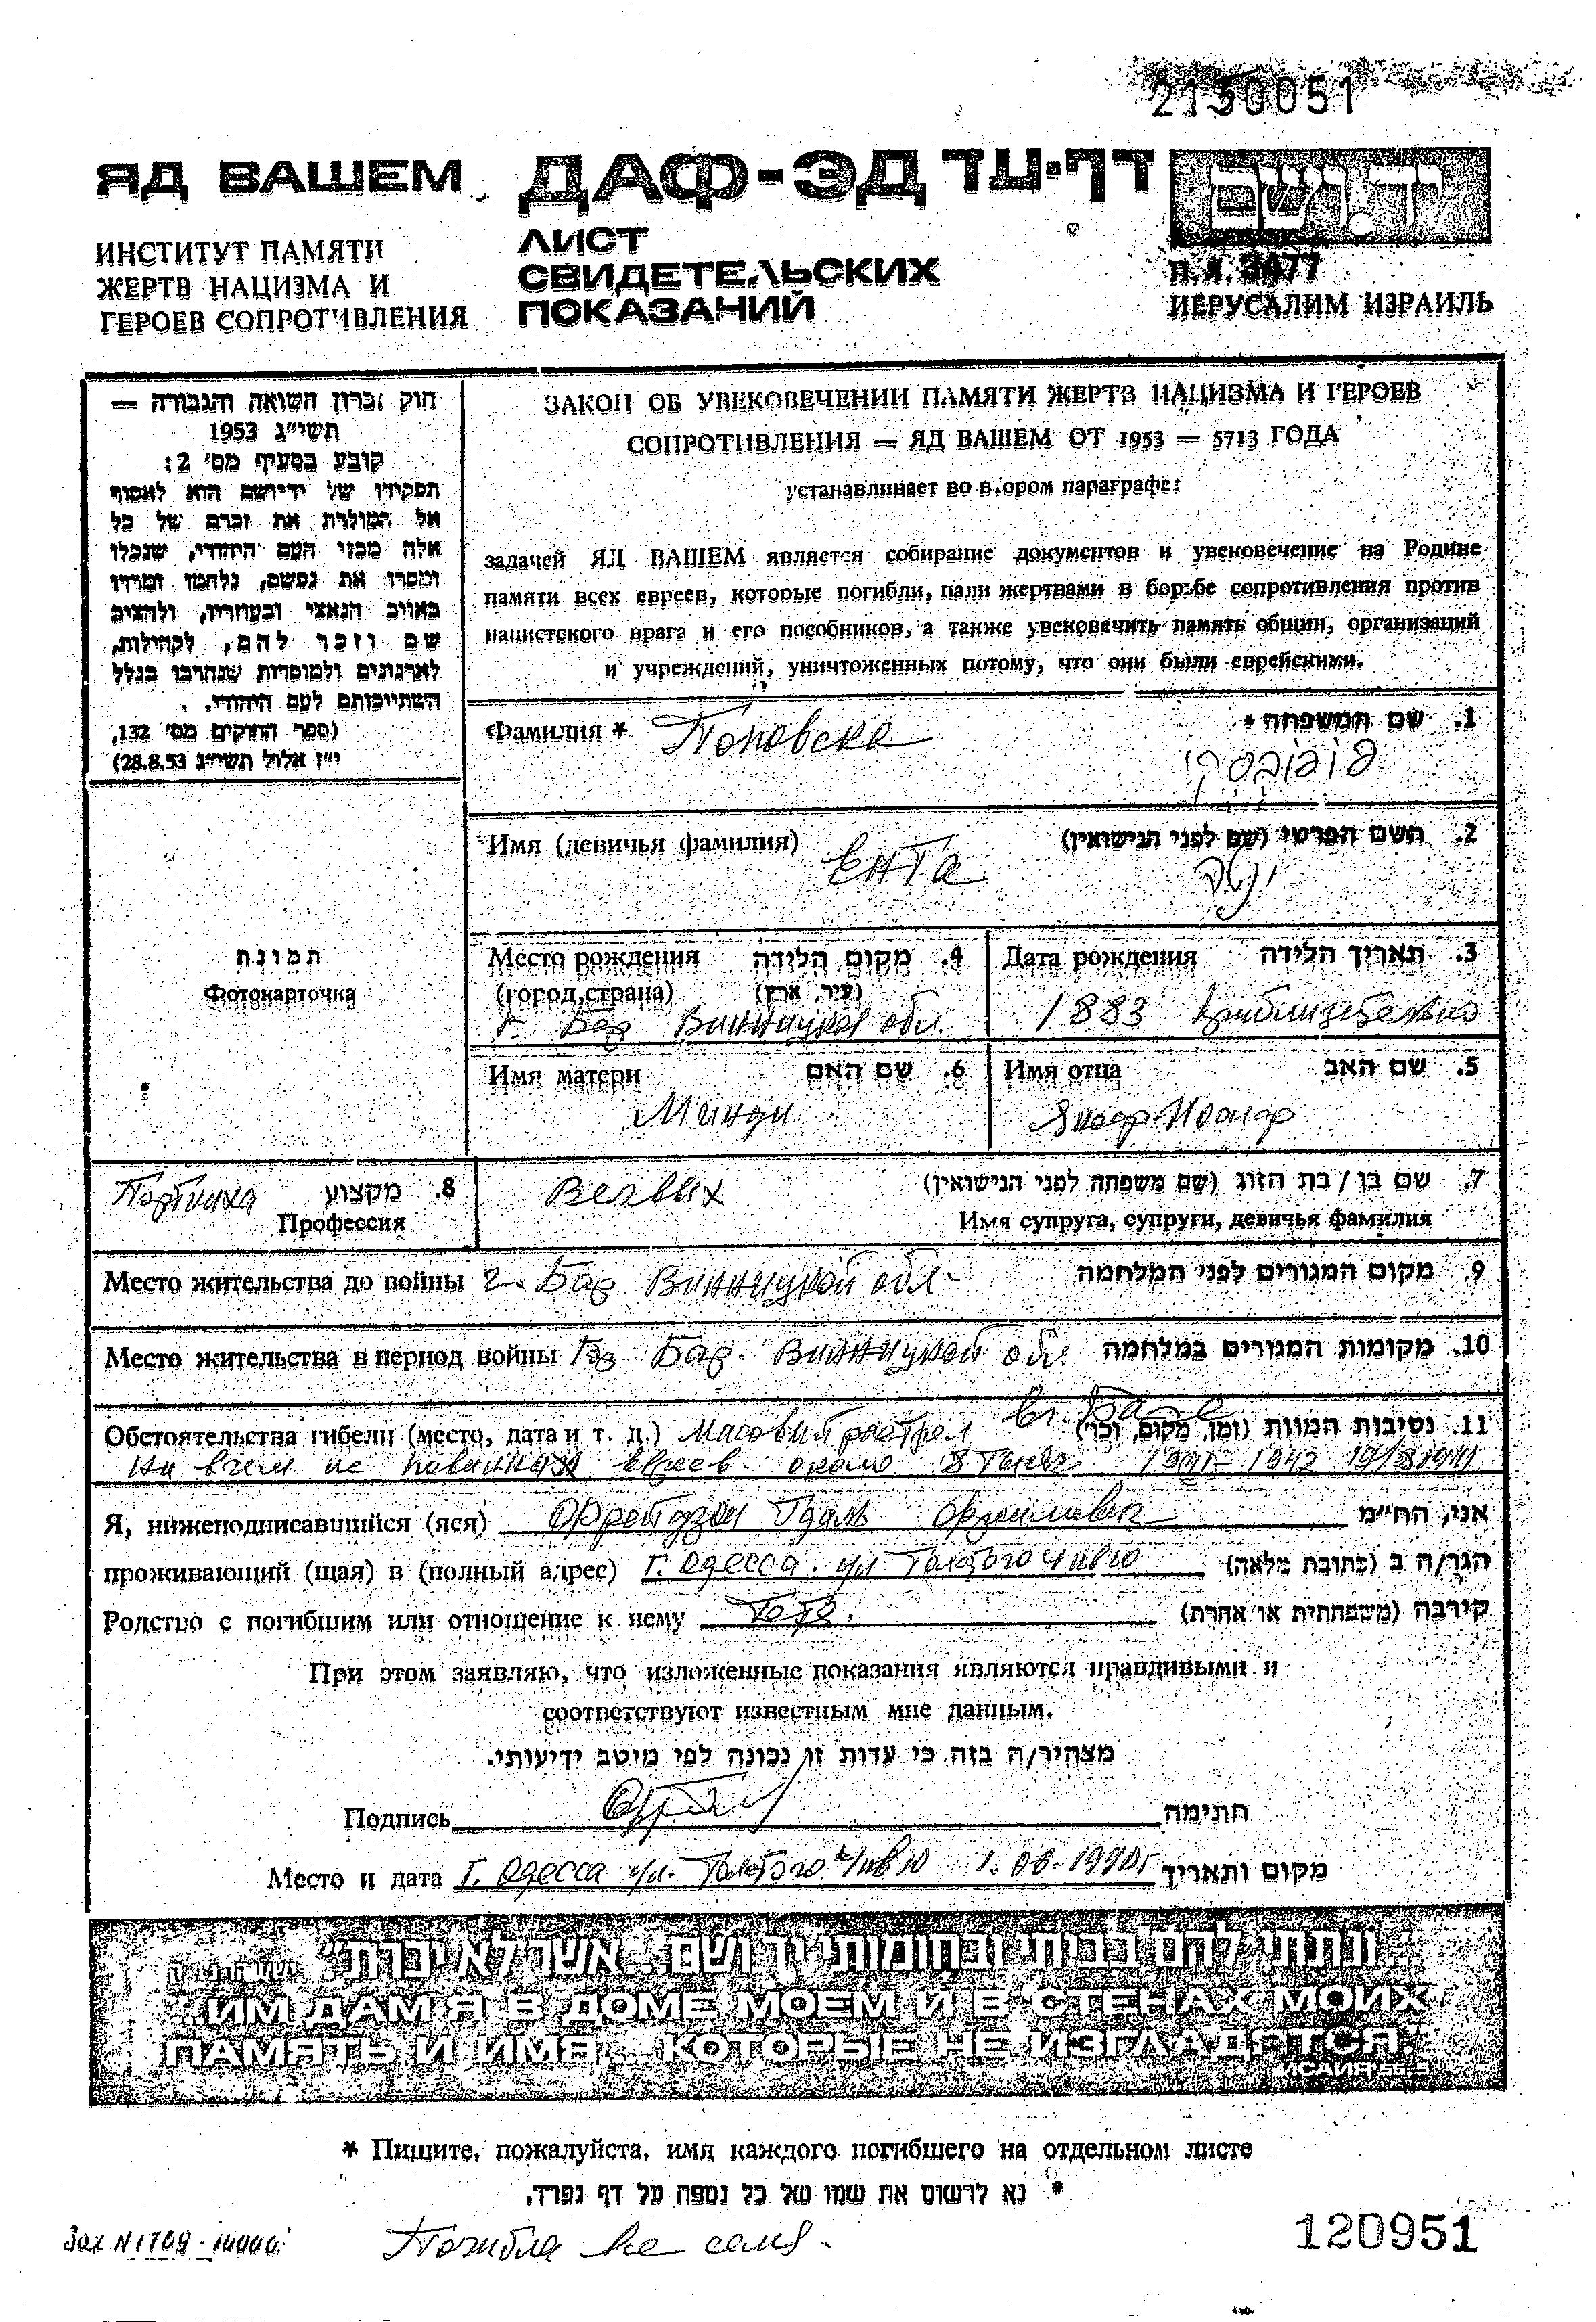 2150051
ЯД ВАШЕМ
ДАФ-ЭД דף-עד
יד ושם
ИНСТИТУТ ПАМЯТИ
ЖЕРТВ НАЦИЗМА И
ГЕРОЕВ СОПРОТИВЛЕНИЯ
ЛИСТ
СВИДЕТЕЛЬСКИХ
ПОКАЗАНИЙ
П.Я. 3477
ИЕРУСАЛИМ ИЗРАИЛЬ
חוק זכרון השואה והגבורה —
תשי״ג 1953
קובע בסעיף מס׳ 2:
תפקידו של יד־ושם הוא לאסוף
אל המולדת את זכרם של כל
אלה מבני העם היהודי, שנפלו
ומסרו את נפשם, נלחמו ומרדו
באויב הנאצי ובעוזריו, ולהציב
שם וזכר להם, לקהילות,
לארגונים ולמוסדות שנחרבו בגלל
השתייכותם לעם היהודי.
(ספר החוקים מס׳ 132,
י״ז אלול תשי״ג 28.8.53)
ЗАКОН ОБ УВЕКОВЕЧЕНИИ ПАМЯТИ ЖЕРТВ НАЦИЗМА И ГЕРОЕВ
СОПРОТИВЛЕНИЯ — ЯД ВАШЕМ ОТ 1953 — 5713 ГОДА
устанавливает во втором параграфе:
задачей ЯД ВАШЕМ является собирание документов и увековечение на Родине
памяти всех евреев, которые погибли, пали жертвами в борьбе сопротивления против
нацистского врага и его пособников, а также увековечить память общин, организаций
и учреждений, уничтоженных потому, что они были еврейскими.
Фамилия * Поповска 1. שם המשפחה *
פופובסקי
Имя (девичья фамилия) Ента 2. השם הפרטי (שם לפני הנישואין)
ינטה
תמונת
Фотокарточка
Место рождения 4. מקום הלידה
(город, страна) (עיר, ארץ)
г. Бар Винницкой обл.
Дата рождения 3. תאריך הלידה
1883 приблизительно
Имя матери 6. שם האם
Минди
Имя отца 5. שם האב
Портниха 8. מקצוע
Профессия
Велвих 7. שם בן / בת הזוג (שם משפחה לפני הנישואין)
Имя супруга, супруги, девичья фамилия
Место жительства до войны г. Бар Винницкой обл. 9. מקום המגורים לפני המלחמה
Место жительства в период войны Гор Бар. Винницкой обл. 10. מקומות המגורים במלחמה
Обстоятельства гибели (место, дата и т. д.) Масовий растрел в г. Баре 11. נסיבות המוות (זמן, מקום, וכו׳)
ни в чем не повинних евреев около 8 тысяч 1942
Я, нижеподписавшийся (яся) אני, הח״מ
проживающий (щая) в (полный адрес) г. Одесса. ул Толстого הגר/ה ב (כתובת מלאה)
Родство с погибшим или отношение к нему קירבה (משפחתית או אחרת)
При этом заявляю, что изложенные показания являются правдивыми и
соответствуют известным мне данным.
מצהיר/ה בזה כי עדות זו נכונה לפי מיטב ידיעותי.
Подпись חתימה
Место и дата г. Одесса ул. Толстого 1.06.1990г מקום ותאריך
„ונתתי להם בביתי ובחומותי יד ושם... אשר לא יכרת״
"ИМ ДАМ Я В ДОМЕ МОЕМ И В СТЕНАХ МОИХ
ПАМЯТЬ И ИМЯ... КОТОРЫЕ НЕ ИЗГЛАДЯТСЯ."
* Пишите, пожалуйста, имя каждого погибшего на отдельном листе
* נא לרשום את שמו של כל נספה על דף נפרד.
Зак N 1769 - 10000
Погибла
120951